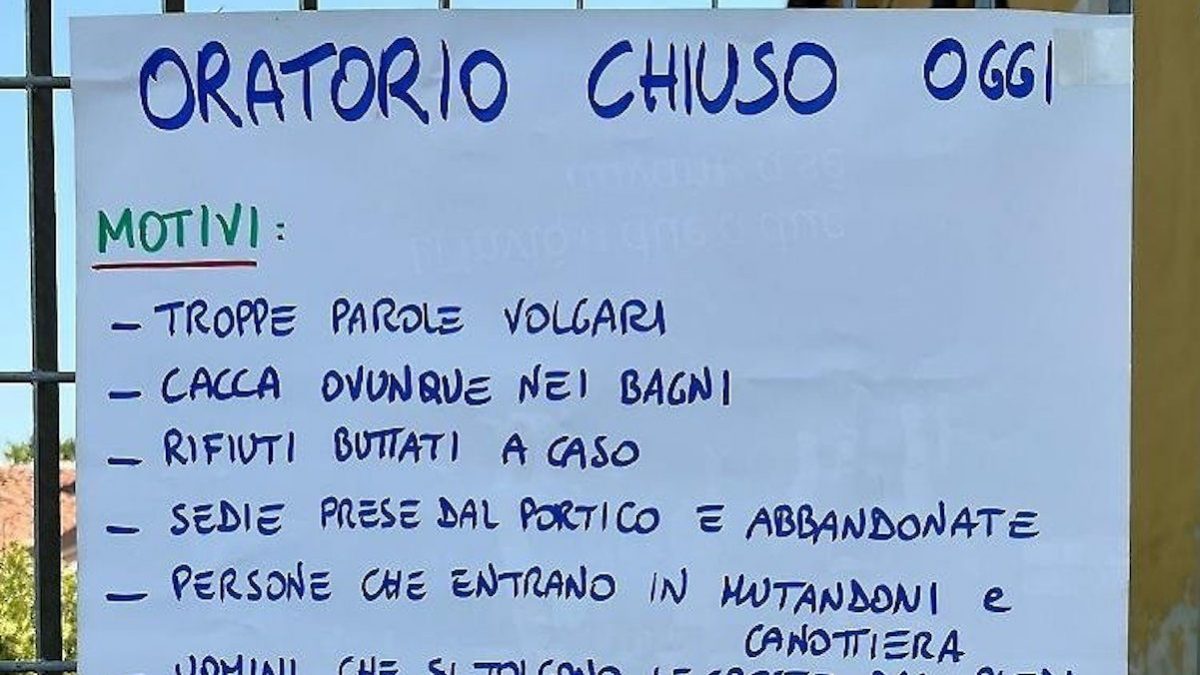 ORATORIO CHIUSO OGGI
MOTIVI:
- TROPPE PAROLE VOLGARI
- CACCA OVUNQUE NEI BAGNI
- RIFIUTI BUTTATI A CASO
- SEDIE PRESE DAL PORTICO E ABBANDONATE
- PERSONE CHE ENTRANO IN MUTANDONI e
CANOTTIERA
UOMINI CHE SI TOLGONO LE CROSTE DAI PIEDI